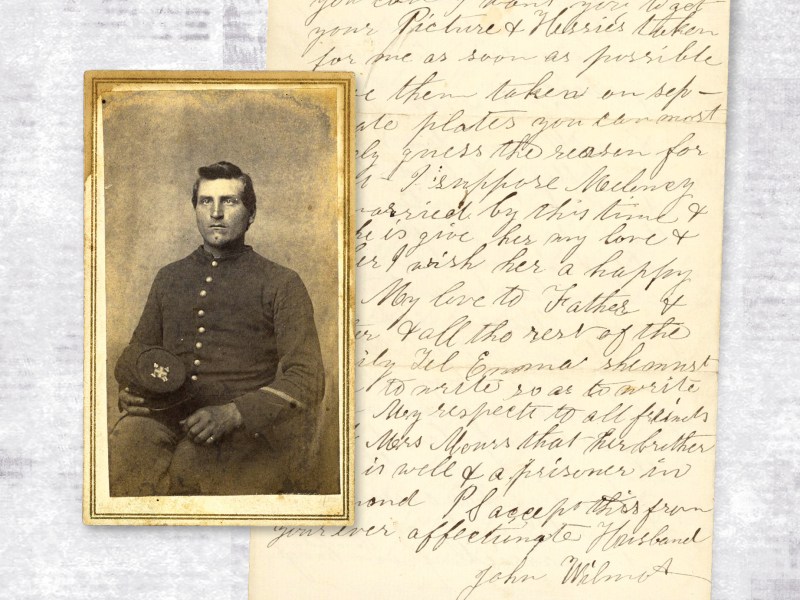 you can I want you to get
your Picture & Hessie's taken
for me as soon as possible
them taken on sep-
ate plates you can most
ly guess the reason for
I suppose Meloncy
married by this time &
he is give her my love &
her I wish her a happy
My love to Father &
er & all the rest of the
ily Tel Emma she must
to write so as to write
My respects to all friends
Mrs Mours that her brother
is well & a prisoner in
mond P S accept this from
your ever affectingate Husband
John Wilmot